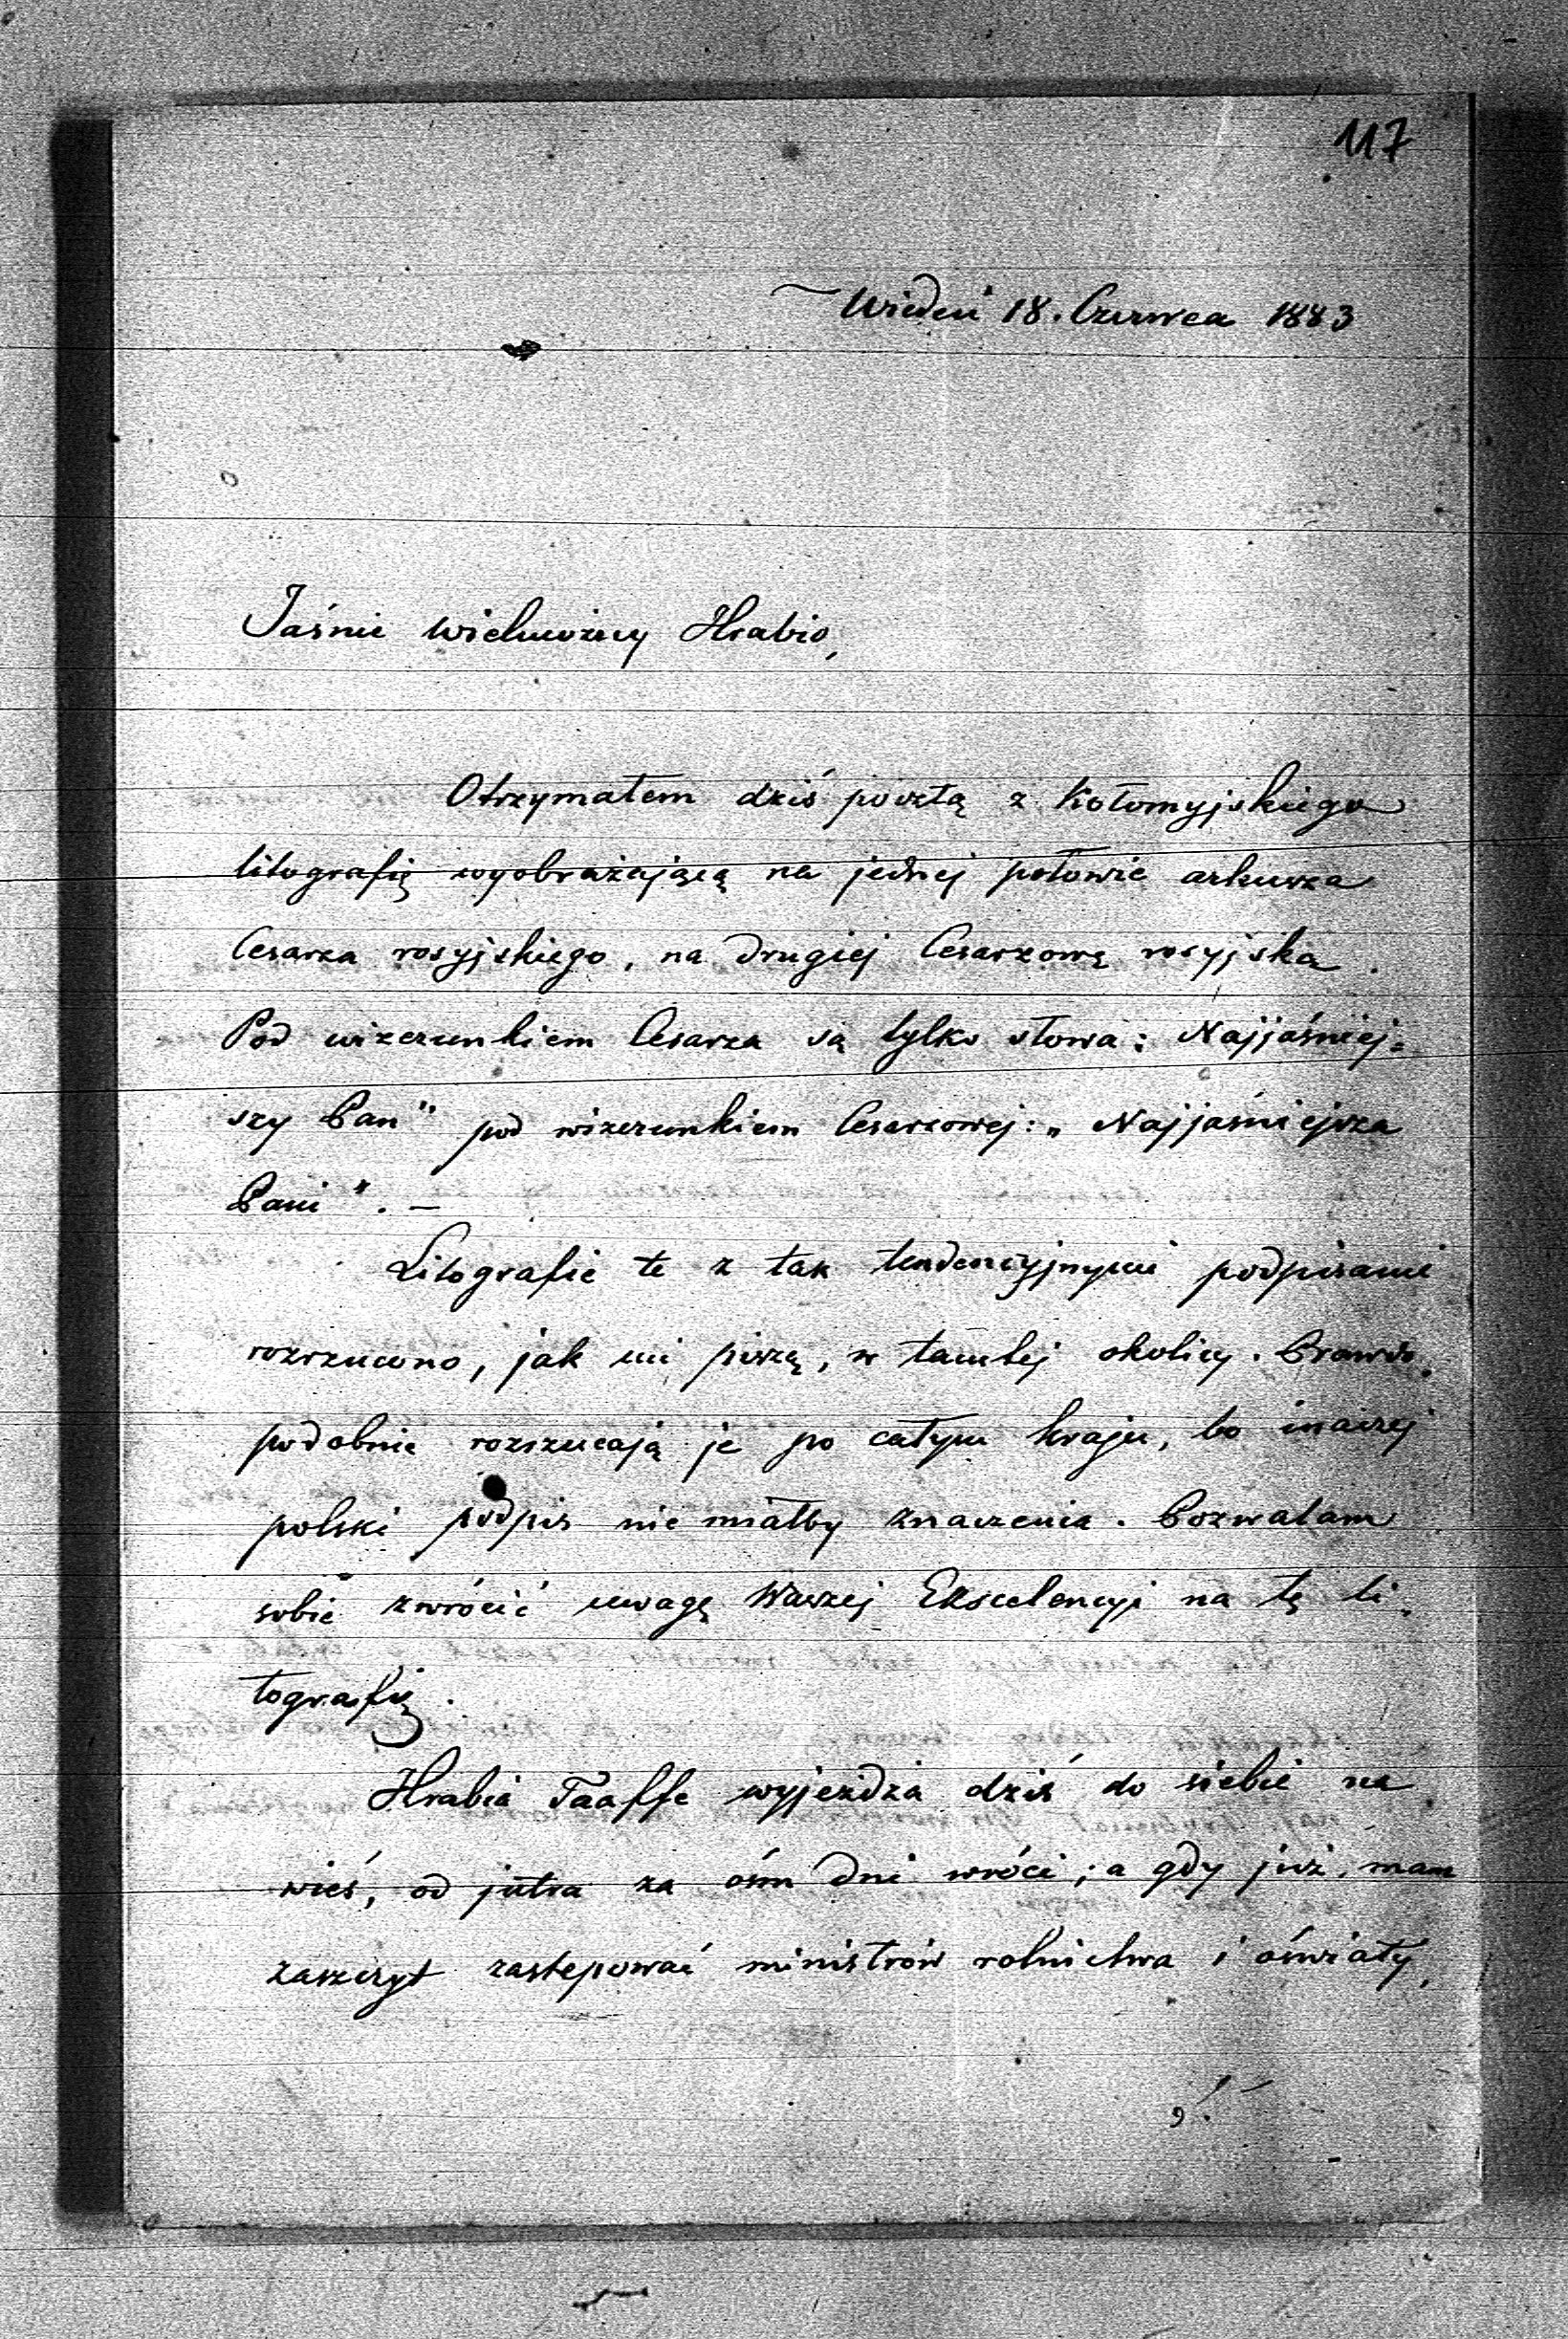 117
Wiedeń 18. Czerwca 1883
Jaśnie wielmożny Hrabio,
Otrzymałem dziś pocztą z Kołomyjskiego
litografię wyobrażającą na jednej połowie arkusza
Cesarza rosyjskiego, na drugiej Cesarzowę rosyjską.
Pod wizerunkiem Cesarza są tylko słowa: Najjaśniej-
szy Pan" pod wizerunkiem Cesarzowej: „Najjaśniejsza
Pani". —
Litografie te z tak tendencyjnymi podpisami
rozrzucono, jak mi piszą, w tamtej okolicy. Prawdo-
podobnie rozrzucają je po całym kraju, bo inaczej
polski podpis nie miałby znaczenia. Pozwalam
sobie zwrócić uwagę Waszej Ekscelencyi na tę li-
tografię.
Hrabia Taaffe wyjeżdża dziś do siebie na
wieś, od jutra za ośm dni wróci; a gdy już mam
zaszczyt zastępować ministrów rolnictwa i oświaty,